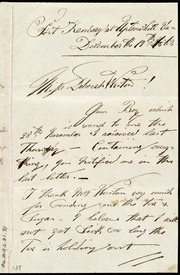 Fort Tremcay at Uptons Hill Va
December 19th 1861
Miss Deborah Weston!
Your Box which
is sent to me the
28th November I received last
Thursday — Containing every-
thing, you notified me in the
last letter. —
I thank Mrs Weston very much
for sending me the Tea &
Sugar. I believe that I will not
get Sick as long the
Tea is holding out